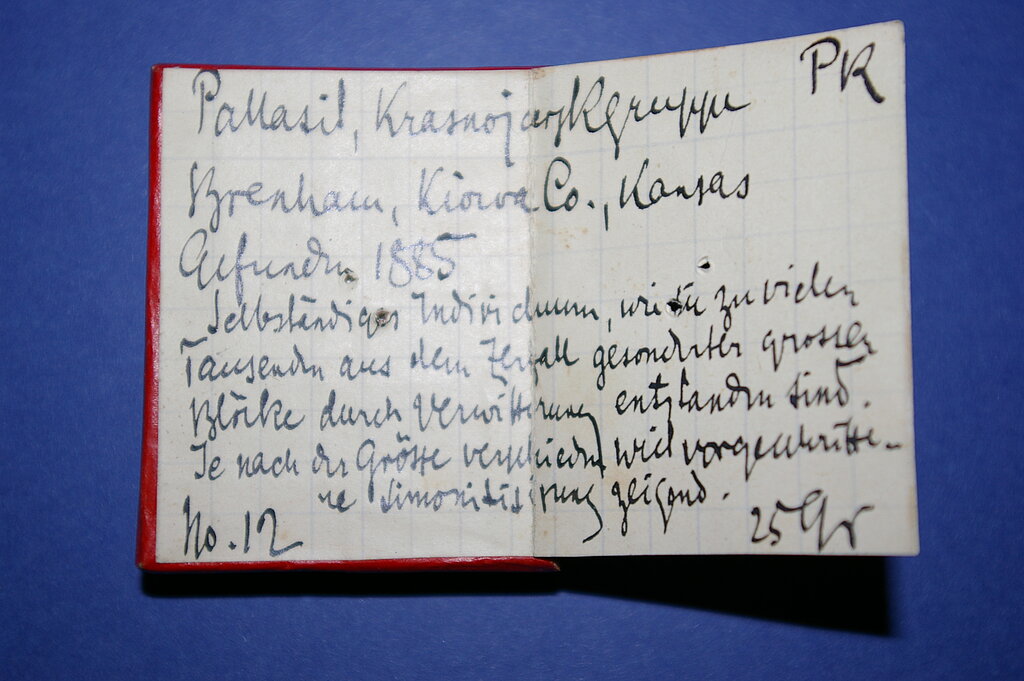 Pallasit, Krasnojarskgruppe PK
Brenham, Kiowa Co., Kansas
Gefunden 1885
Selbständiges Individuum, wie sie zu vielen
Tausenden aus dem Zerfall gesonderter grosser
Blöcke durch Verwitterung entstanden sind.
Je nach der Grösse verschieden weit vorgeschritte-
ne Limonitisirung zeigend.
No. 12 25 Gr